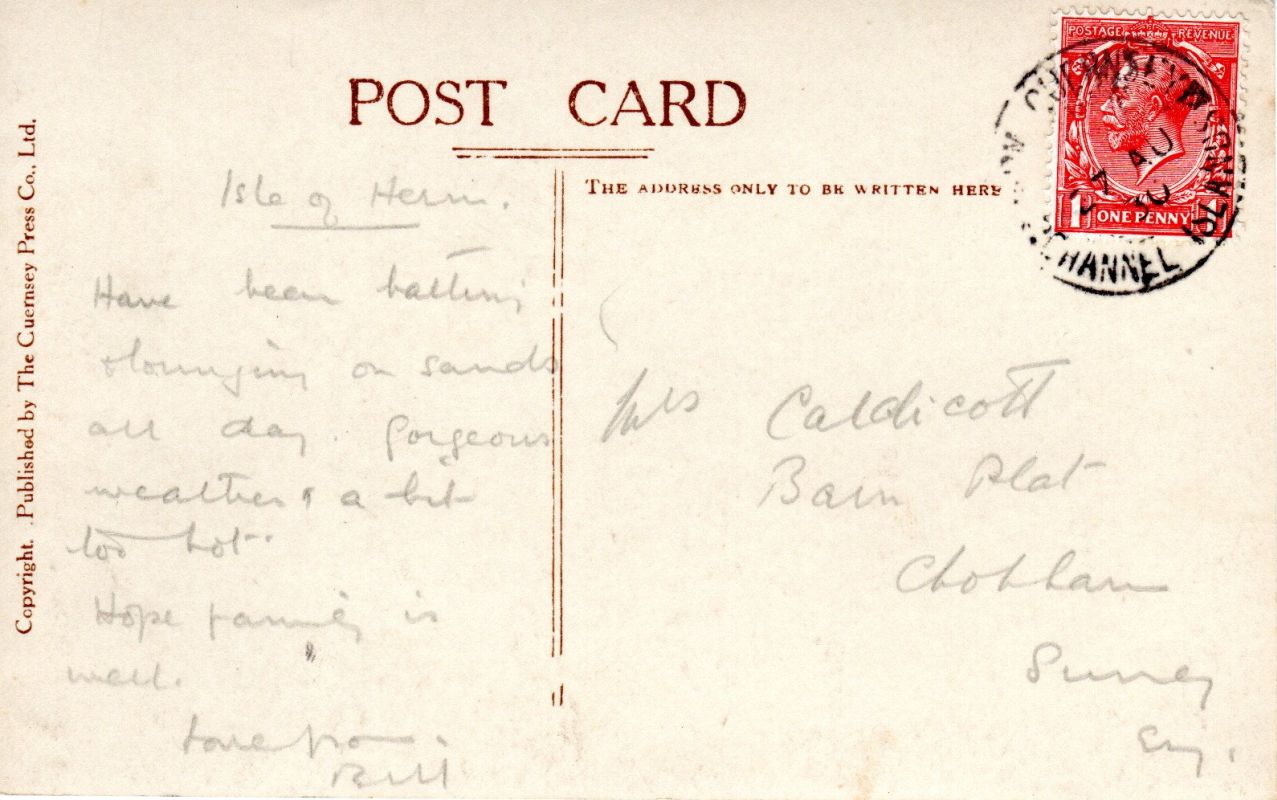 Copyright. Published by The Guernsey Press Co., Ltd.
POST CARD
THE ADDRESS ONLY TO BE WRITTEN HERE
POSTAGE REVENUE
1 ONE PENNY 1
CHANNEL ISLANDS
AU
Isle of Herm.
Have been bathing
& lounging on sands
all day. Gorgeous
weather & a bit
too hot.
Hope family is
well.
Love from
Bill
Mrs Caldicott
Barn Plat
Chobham
Surrey
Eng.